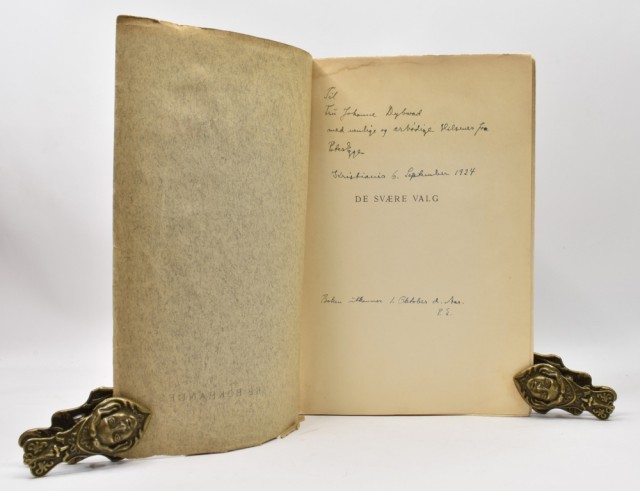 Til
Fru Johanne Dybwad
med venlige og ærbødige Hilsener fra
Peter
Christiania 6. September 1924
DE SVÆRE VALG
Bogen udkommer 1. Oktober d. Aar.